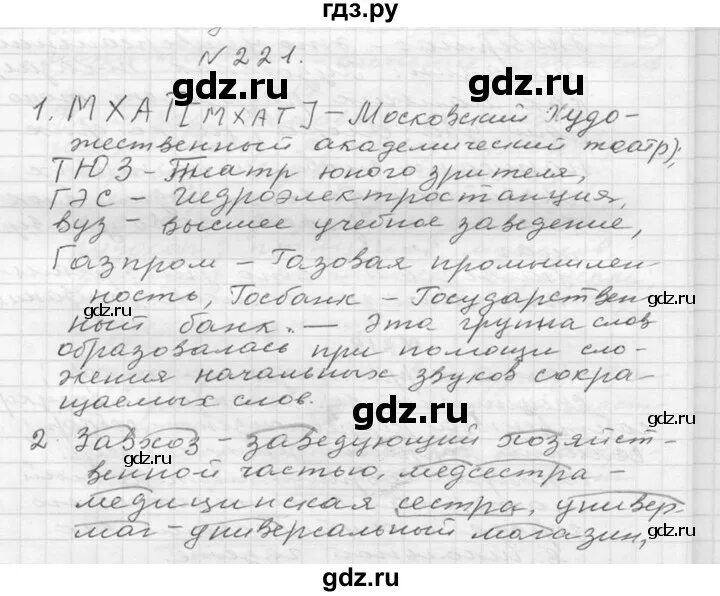 гдз.ру
№221.
1. МХАТ [МХАТ] – Московский Худо-
жественный академический театр),
ТЮЗ – Театр юного зрителя,
ГЭС – гидроэлектростанция,
вуз – высшее учебное заведение,
Газпром – Газовая промышлен-
ность, Госбанк – Государствен-
ный банк. – Эта группа слов
образовалась при помощи сло-
жения начальных звуков сокра-
щаемых слов.
2. Завхоз – заведующий хозяйст-
венной частью, медсестра –
медицинская сестра, универ-
маг – универсальный магазин,
gdz.ru
gdz.ru
gdz.ru
gdz.ru
gdz.ru
gdz.ru
gdz.ru
gdz.ru
gdz.ru
gdz.ru
gdz.ru
gdz.ru
gdz.ru